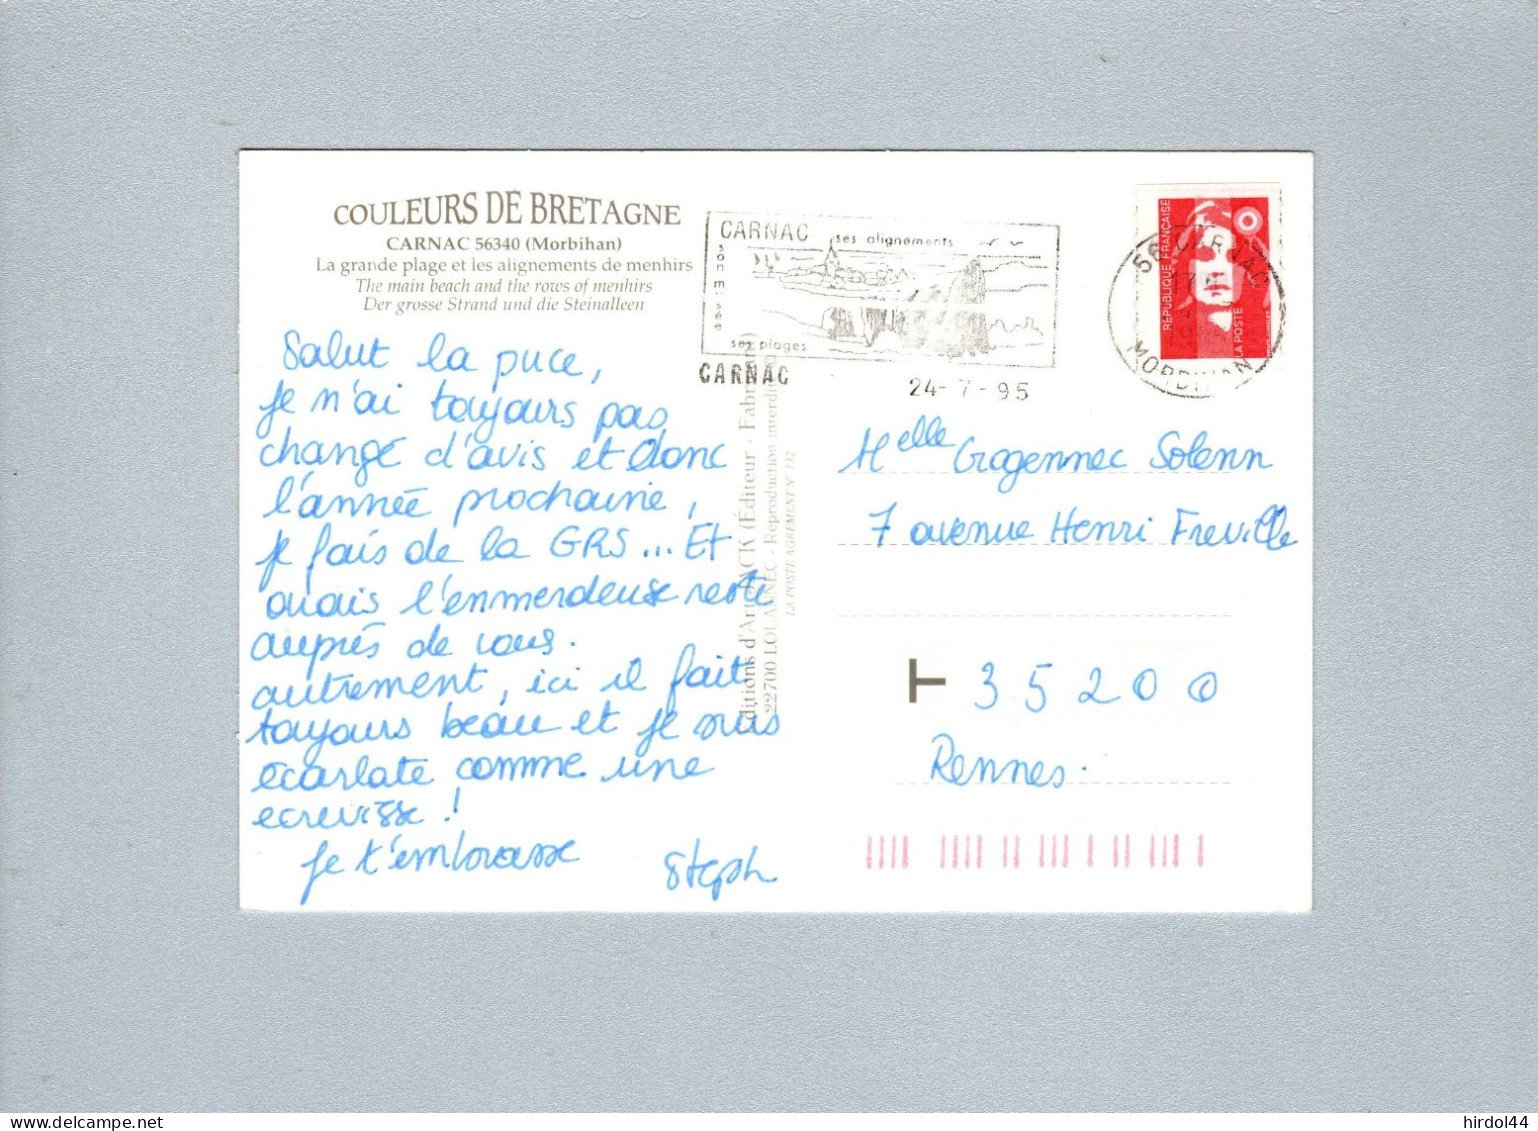 COULEURS DE BRETAGNE
CARNAC 56340 (Morbihan)
La grande plage et les alignements de menhirs
The main beach and the rows of menhirs
Der grosse Strand und die Steinalleen
Salut la puce,
Je n'ai toujours pas
changé d'avis et donc
l'année prochaine,
je fais de la GRS... Et
ouais l'emmerdeuse reste
auprès de vous.
autrement, ici il fait
toujours beau et je suis
écarlate comme une
ecrevisse !
Je t'embrasse
Steph
Éditions d'Art JACK (Éditeur - Fabricant)
22700 LOUANNEC - Reproduction interdite
LA POSTE AGREMENT N° 132
CARNAC ses alignements
ses plages
CARNAC
24-7-95
56 CARNAC
MORBIHAN
RÉPUBLIQUE FRANÇAISE
LA POSTE
Melle Gragennec Solenn
7 avenue Henri Freville
T 35200
Rennes.
hirdol44